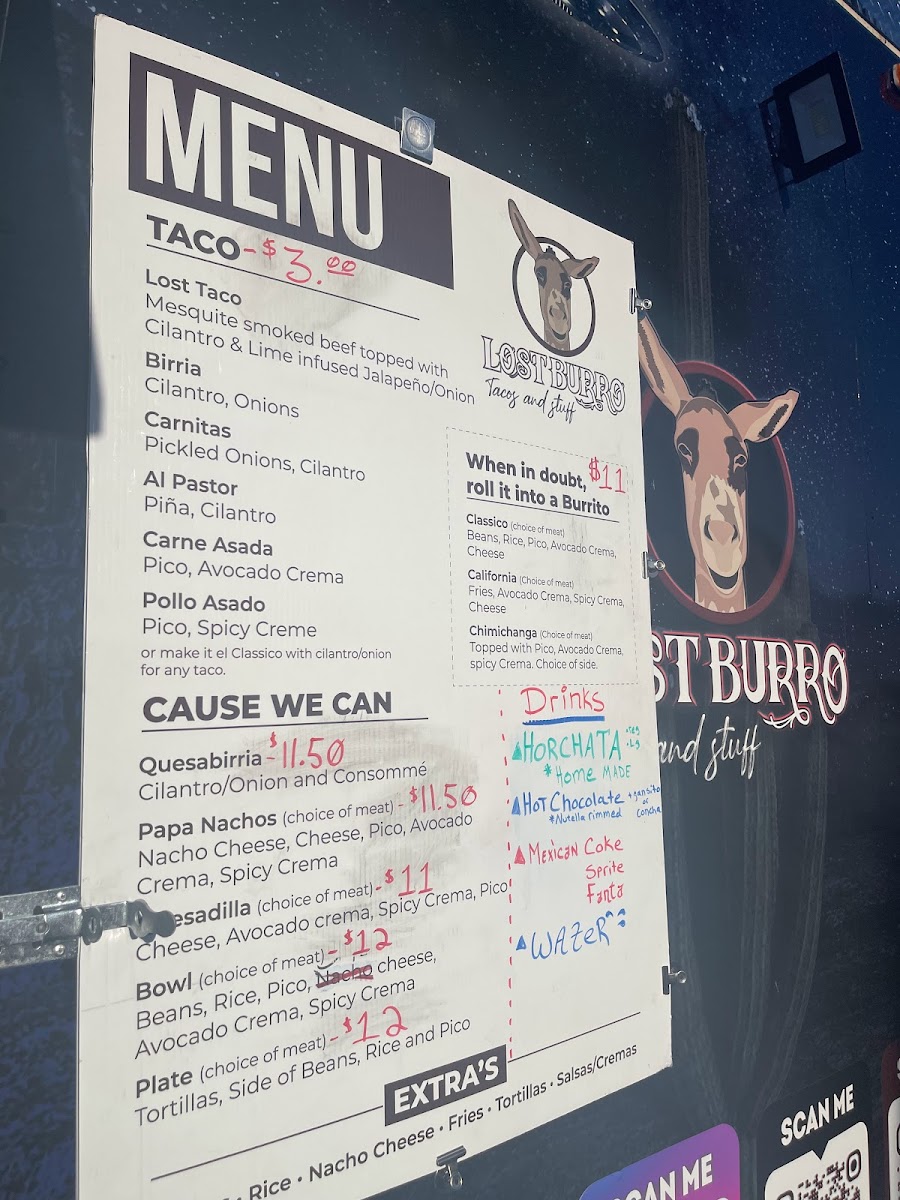 MENU
TACO - $3.00
Lost Taco
Mesquite smoked beef topped with
Cilantro & Lime infused Jalapeño/Onion
Birria
Cilantro, Onions
Carnitas
Pickled Onions, Cilantro
Al Pastor
Piña, Cilantro
Carne Asada
Pico, Avocado Crema
Pollo Asado
Pico, Spicy Creme
or make it el Classico with cilantro/onion
for any taco.
CAUSE WE CAN
Quesabirria - $11.50
Cilantro/Onion and Consommé
Papa Nachos (choice of meat) - $11.50
Nacho Cheese, Cheese, Pico, Avocado
Crema, Spicy Crema
esadilla (choice of meat) - $11
Cheese, Avocado crema, Spicy Crema, Pico
Bowl (choice of meat) - $12
Beans, Rice, Pico, Nacho cheese,
Avocado Crema, Spicy Crema
Plate (choice of meat) - $12
Tortillas, Side of Beans, Rice and Pico
LOST BURRO
Tacos and stuff
When in doubt, $11
roll it into a Burrito
Classico (choice of meat)
Beans, Rice, Pico, Avocado Crema,
Cheese
California (Choice of meat)
Fries, Avocado Crema, Spicy Crema,
Cheese
Chimichanga (Choice of meat)
Topped with Pico, Avocado Crema,
spicy Crema. Choice of side.
Drinks
HORCHATA
*Home MADE
Hot Chocolate + gansito
or
*Nutella rimmed concha
Mexican Coke
Sprite
Fanta
WAZeR
EXTRA'S
Rice • Nacho Cheese • Fries • Tortillas • Salsas/Cremas
ST BURRO
and stuff
SCAN ME
SCAN ME